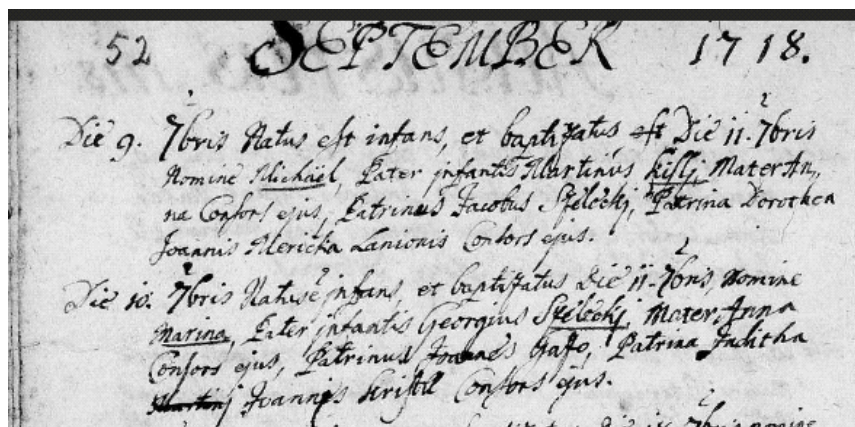 52 SEPTEMBER 1718.
Die 9. 7bris Natus est infans, et baptizatus est Die 11. 7bris
Nomine Michael, Pater infantis Martinus Kislj, Mater An„
na Consors ejus, Patrinus Jacobus Szeleckj, Patrina Dorothea
Joannis Mericka Lanionis Consors ejus.
Die 10. 7bris Natus e infans, et baptizatus Die 11. 7bris, Nomine
Marina, Pater infantis Georgius Szeleckj, Mater Anna
Consors ejus, Patrinus Joannes Patrina Juditha
Joannis Consors ejus.